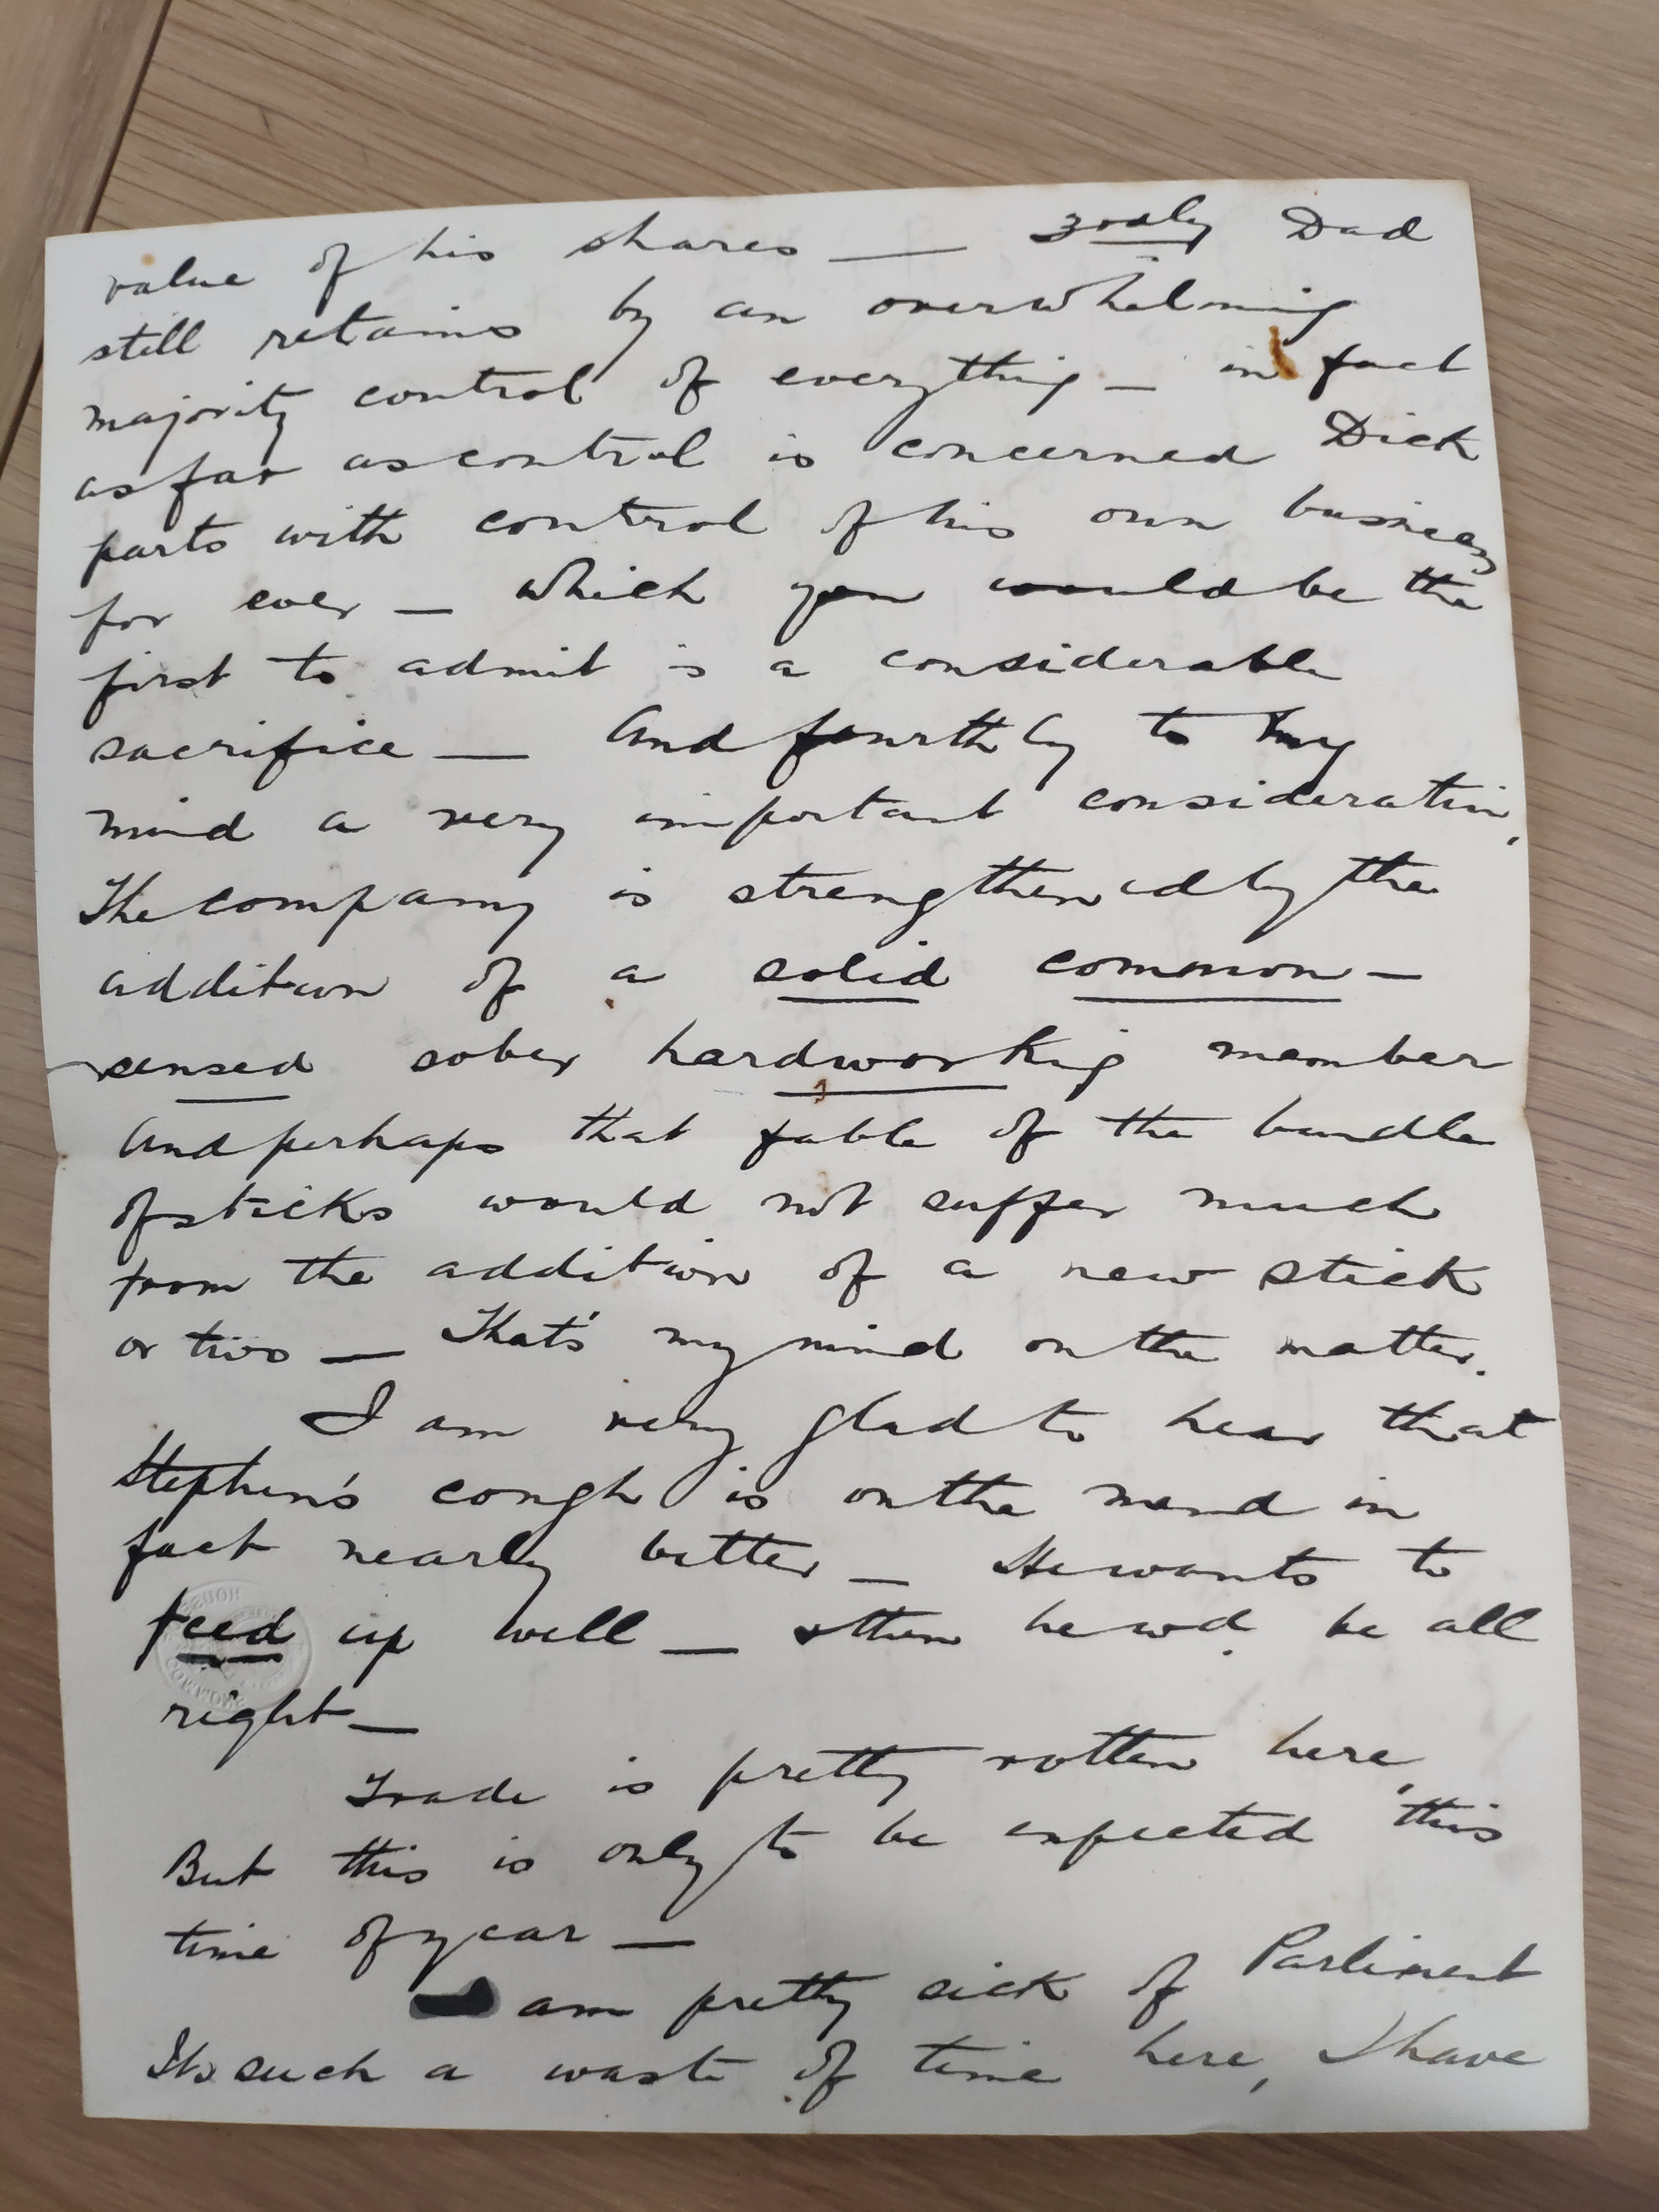 value of his shares — 3rdly Dad
still retains by an overwhelming
majority control of everything — in fact
as far as control is concerned Dick
parts with control of his own business
for ever — which you would be the
first to admit is a considerable
sacrifice — And fourthly to my
mind a very important consideration,
The company is strengthened by the
addition of a solid common-
sensed sober hardworking member
And perhaps that fable of the bundle
of sticks would not suffer much
from the addition of a new stick
or two — That's my mind on the matter.
I am very glad to hear that
Stephen's cough is on the mend in
fact nearly better — He wants to
feed up well — & then he wd. be all
right —
Trade is pretty rotten here,
But this is only to be expected this
time of year —
am pretty sick of Parliment
Its such a waste of time here, I have
HOUSE
COMMONS